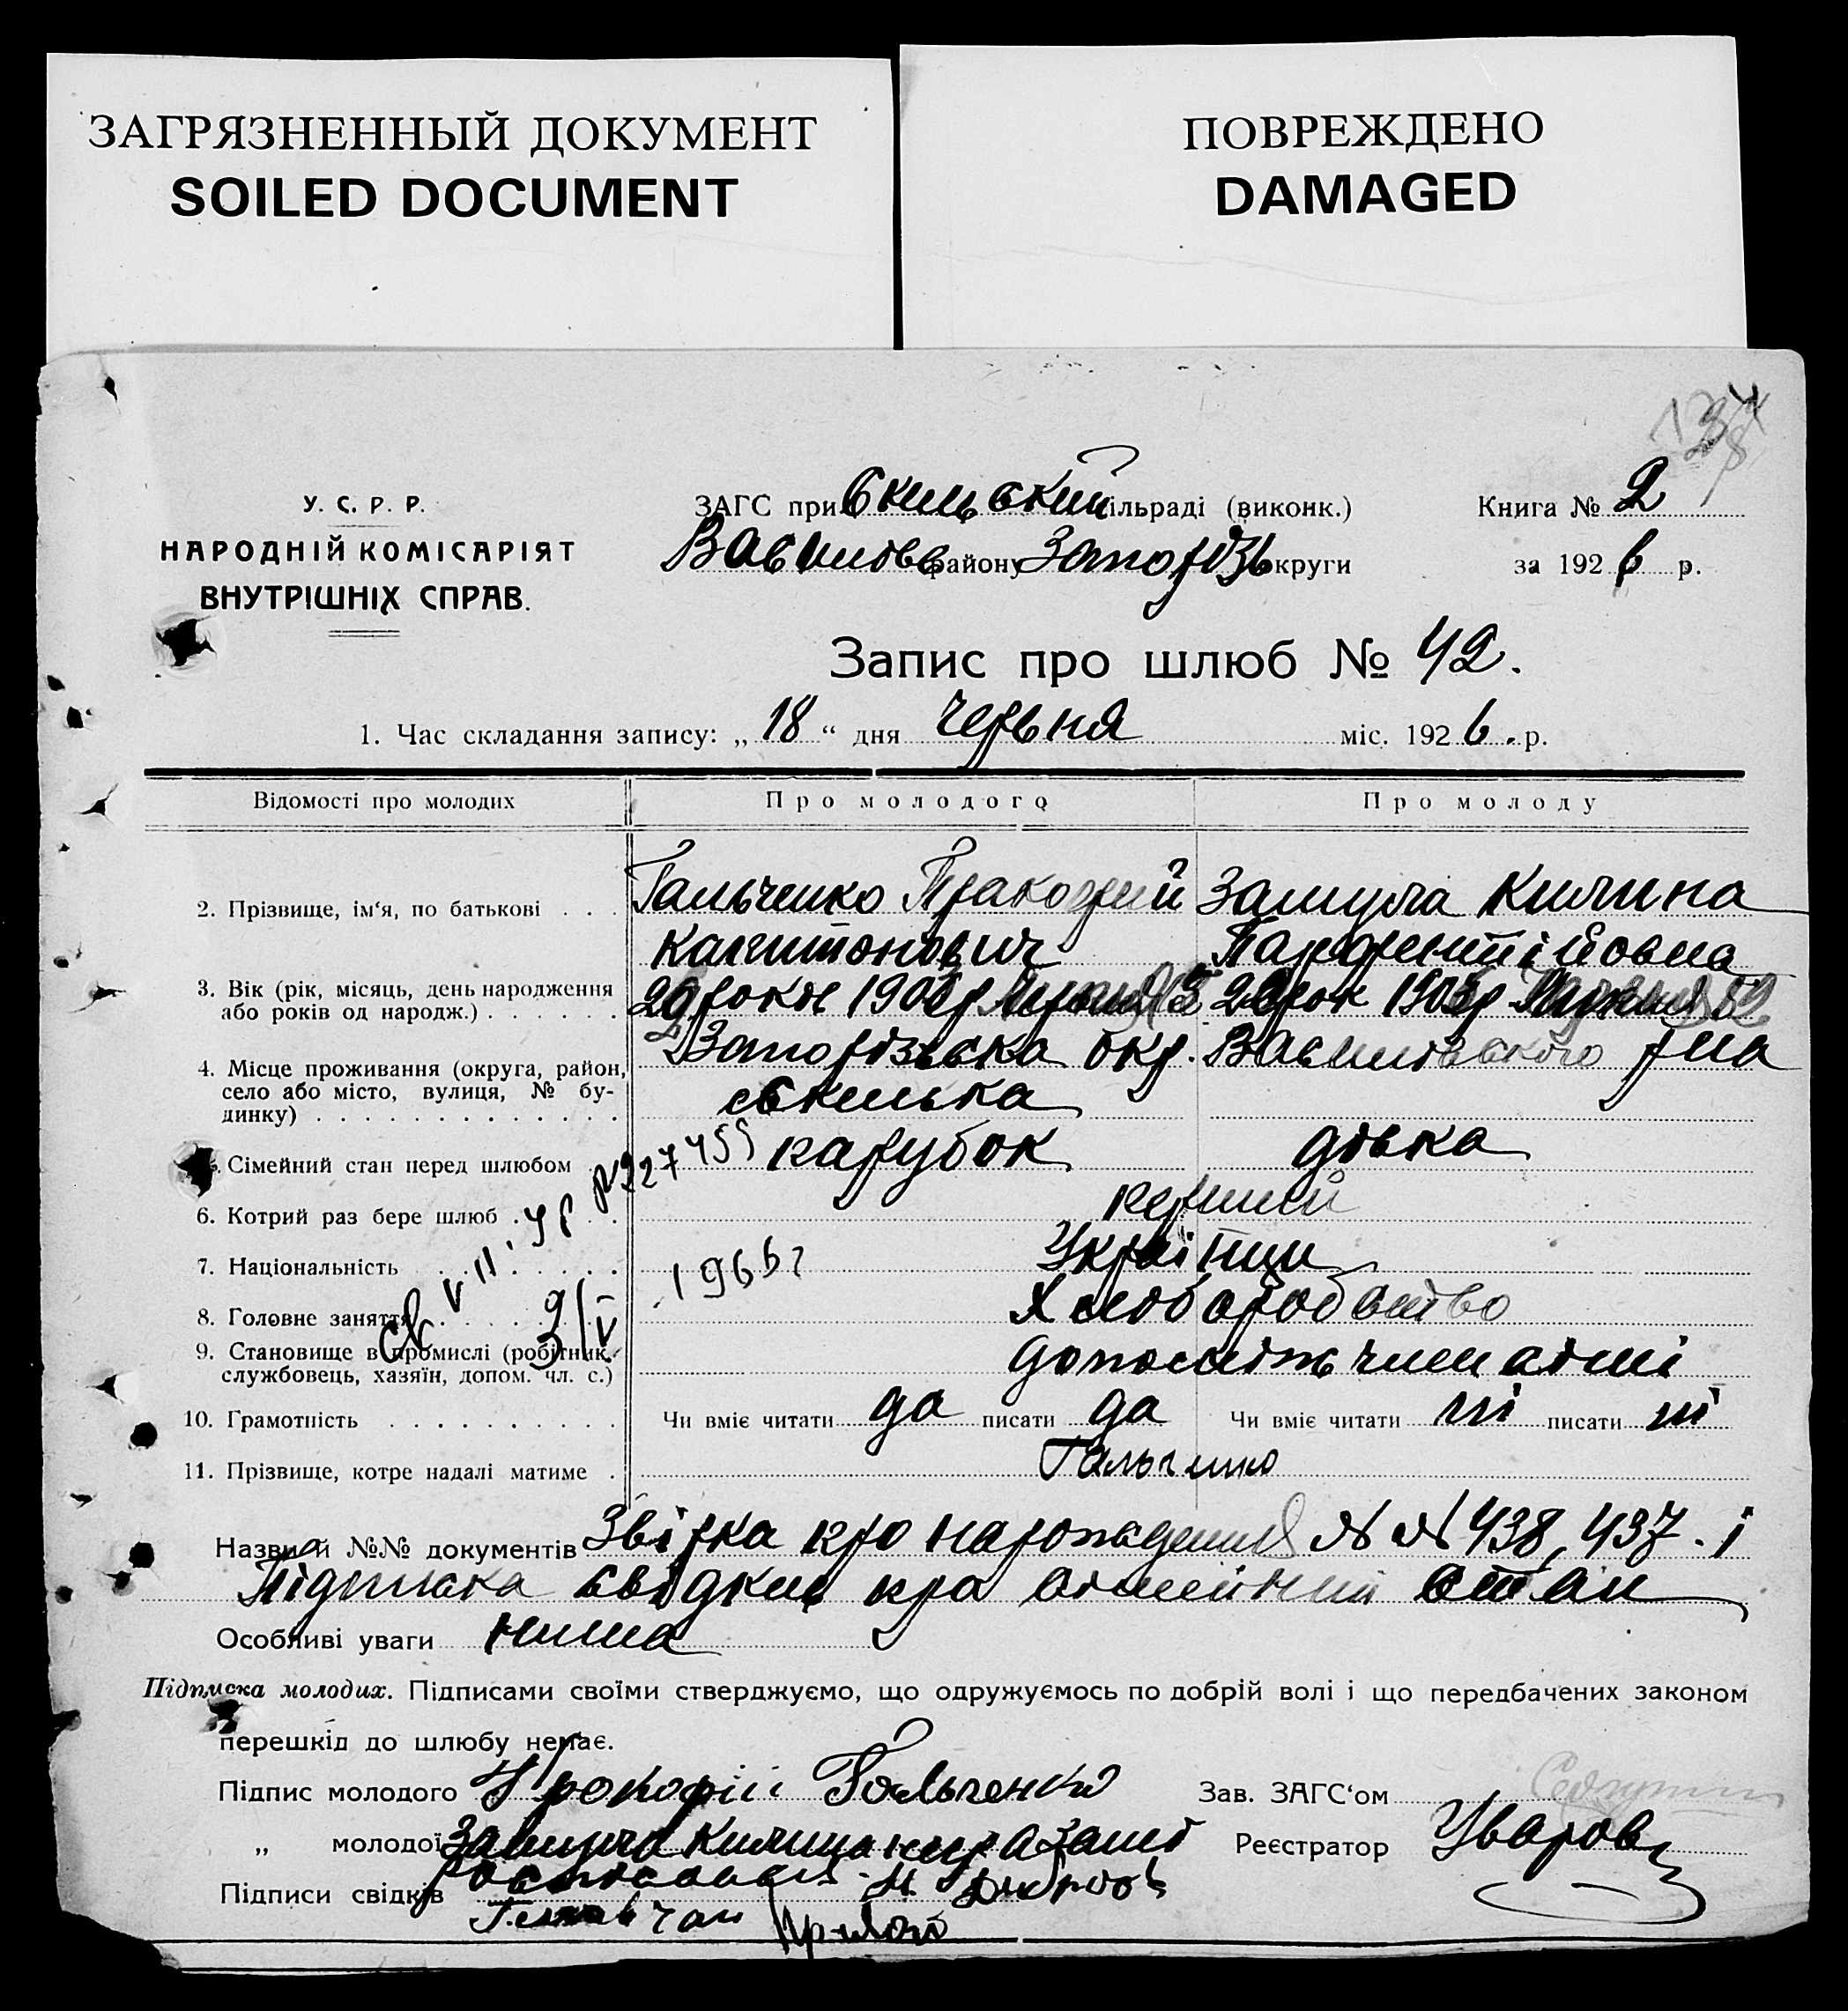 ЗАГРЯЗНЕННЫЙ ДОКУМЕНТ
SOILED DOCUMENT
ПОВРЕЖДЕНО
DAMAGED
У. С. Р. Р.
НАРОДНІЙ КОМІСАРІЯТ
ВНУТРІШНІХ СПРАВ.
ЗАГС при Скельський сільраді (виконк.)
Василівс району Запоріжь округи
Книга № 2
за 1926 р.
Запис про шлюб № 42.
1. Час складання запису: „ 18 “ дня червня міс. 1926. р.
Відомості про молодих
Про молодого
Про молоду
2. Прізвище, ім‘я, по батькові . . .
Гальченко Пракофий
Капитонович
Зашула Килина
Парфентійовна
3. Вік (рік, місяць, день народження
або років од народж.) . . . . . .
4. Місце проживання (округа, район,
село або місто, вулиця, № бу-
динку) . . . . . . . . . . . . .
Запорізьска окр. Василівського р-на
с скелька
5. Сімейний стан перед шлюбом
парубок
дівка
6. Котрий раз бере шлюб . . . .
перший
7. Національність . . . . . . .
Українци
1966 г
8. Головне заняття . . . . . . .
Хліборобство
9. Становище в промислі (робітник,
службовець, хазяїн, допом. чл. с.)
допомоіжь член сімї
10. Грамотність . . . . . . . . . .
Чи вміє читати да писати да
Чи вміє читати ні писати ні
11. Прізвище, котре надалі матиме .
Гальченко
Назви й №№ документів Звірка про народждения № № 438, 437. і
Підписка свідків про сімейний стан
Особливі уваги нима
Підписка молодих. Підписами своїми стверджуємо, що одружуємось по добрій волі і що передбачених законом
перешкід до шлюбу немає.
Підпис молодого Прокофій Гальченко
Зав. ЗАГС‘ом
„ молодої Зашула Килина
Реєстратор Уваров
Підписи свідків